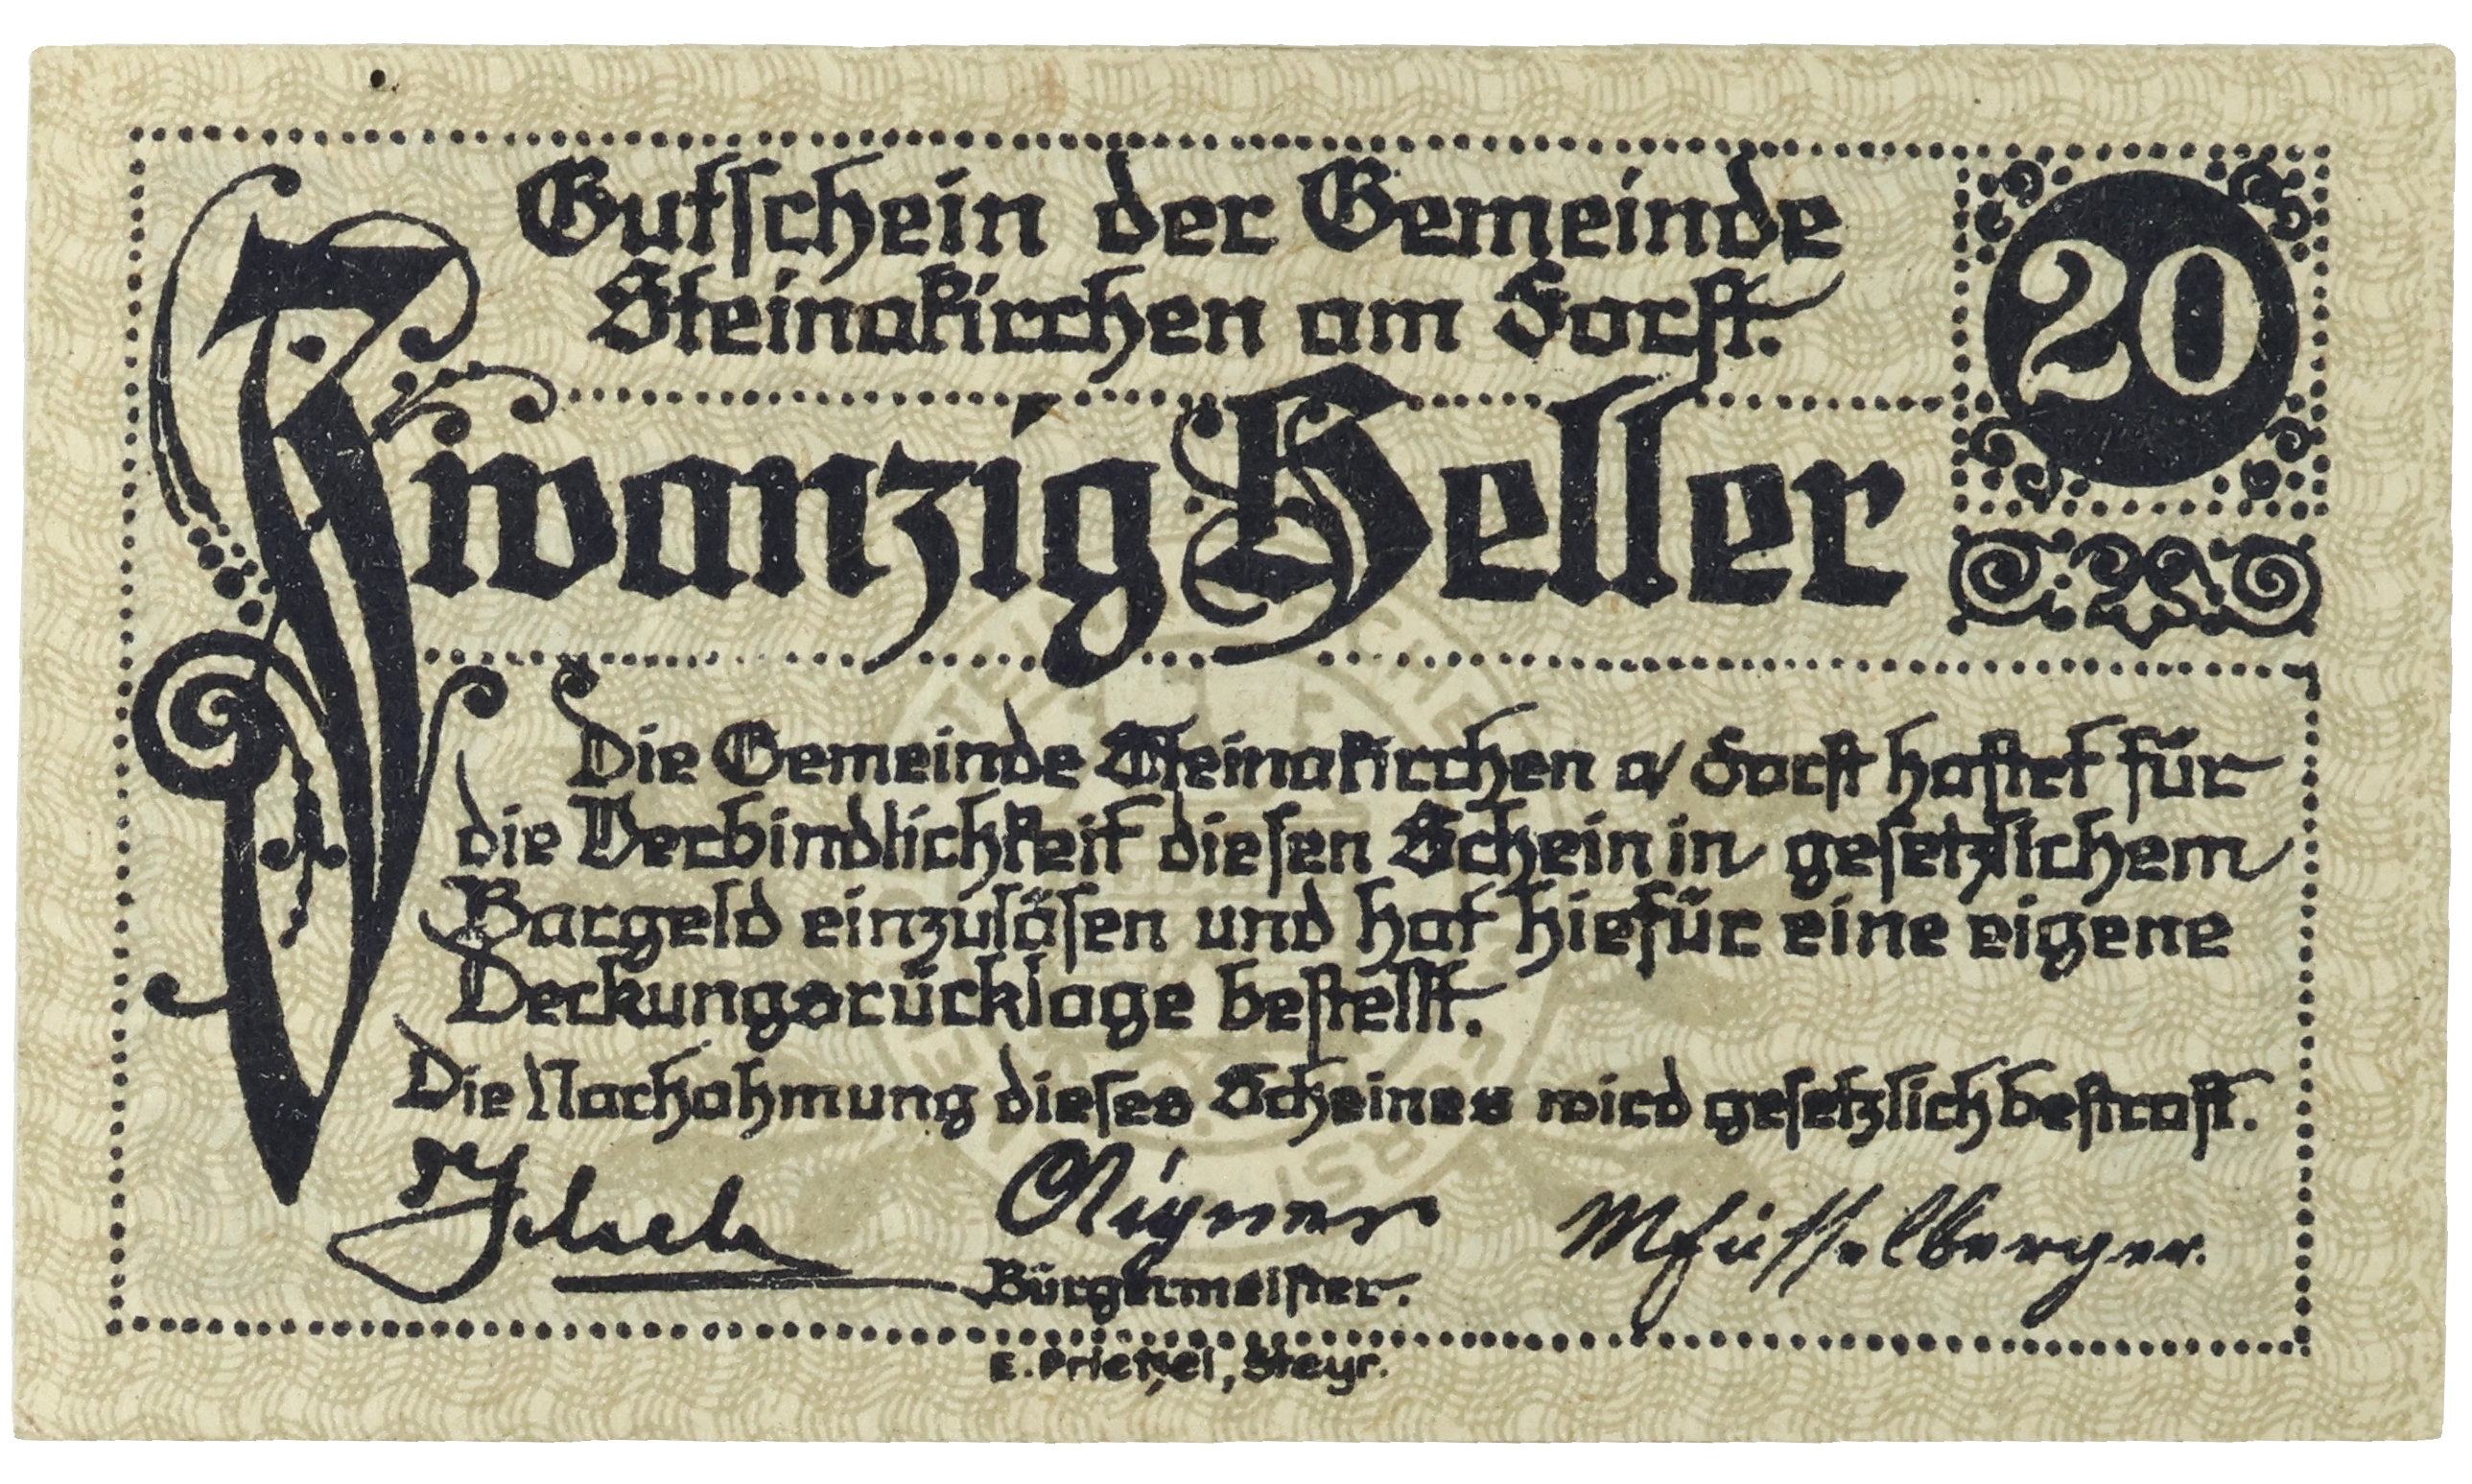 Gutschein der Gemeinde
Steinakirchen am Forst.
20
Zwanzig Heller
Die Gemeinde Steinakirchen a/ Forst haftet für
die Verbindlichkeit diesen Schein in gesetzlichem
Bargeld einzulösen und hat hiefür eine eigene
Deckungsrücklage bestellt.
Die Nachahmung dieses Scheines wird gesetzlich bestraft.
Aigner
Bürgermeister.
E. Prietzel, Steyr.